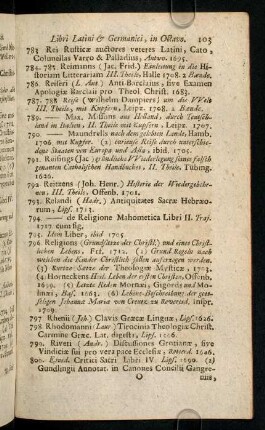 Libri Latini & Germanici, in Octavo. 103
783 Rei Rusticæ auctores veteres Latini, Cato,
Columellas Vargo & Palladius, Antwo. 1695.
784. 785 Reimanns (Jac. Frid.) Einleitung in die Hi-
storiam Litterariam III. Theile, Halle 1708. 2 Bande,
786 Reiseri (L. Ant.) Anti Barclaius, sive Examen
Apologiæ Barclaii pro Theol Christ. 1683.
787. 788 Reise (Wilhelm Dampiers) um die Welt
III. Theile, mit Kupfern, Leipz. 1708. 2 Bande.
789 —— Max. Missons aus Holland, durch Teutsch-
land in Italien, II. Theile mit Kupfern, Leipz. 1707.
790 —— Maundrells nach dem gelobten Lande, Hamb.
1706 mit Kupfer. (2) curieuse Reise durch unterschie-
dene Staaten von Europa und Asia, ibid. 1705.
791. Reihings (Jac) grundliche Wiederlegung seines falsch
genanten Catholischen Handbuches, II. Theile, Tübing.
1626.
792 Reitzens (Joh. Henr.) Historie der Wiedergebohr-
nen, III. Theile, Offenb. 1701.
793 Relandi (Hadr.) Antiquitates Sacræ Hebræo-
rum, Lips. 1713.
794 —— de Religione Mahometica Libri II. Traj.
1717 cum fig,
795 Idem Liber, ibid 1705
796 Religiens (Grundsätze der Christl.) und eines Christ-
lichen Lebens, Frf. 1712. (2) Grund Regeln nach
welchen die Kinder Christlich sollen aufferzogen werden.
(3) Kurtze Sätze der Theologiæ Mysticæ 1713.
(4) Horneckens Heil. Leben der ersten Christen, Offenb.
1699. (5) Letzte Reden Mornæi, Gigords und Mo-
linæi, Bas. 1665. (6) Lebens-Beschreibung der geist-
seligen Johannæ Maria von Cronta zu Beuerwil, impr.
1709.
797 Rhenii (Joh) Clavis Græcæ Linguæ, Lips. 1626.
798 Rhodomanni Laur) Tirocinis Theologiæ Christ.
Carmine Græc. Lat. digestæ, Lips. 1596.
799 Riveti (Andr.) Discussiones Grotianæ, sive
Vindiciæ sui pro vera pace Ecclesiæ, Roterod. 1646.
800 Ejusd. Critici Sacri Libri IV. Lips. 1690. (2)
Gundlingii Annotat. in Canones Concilii Gangre-
O nis,